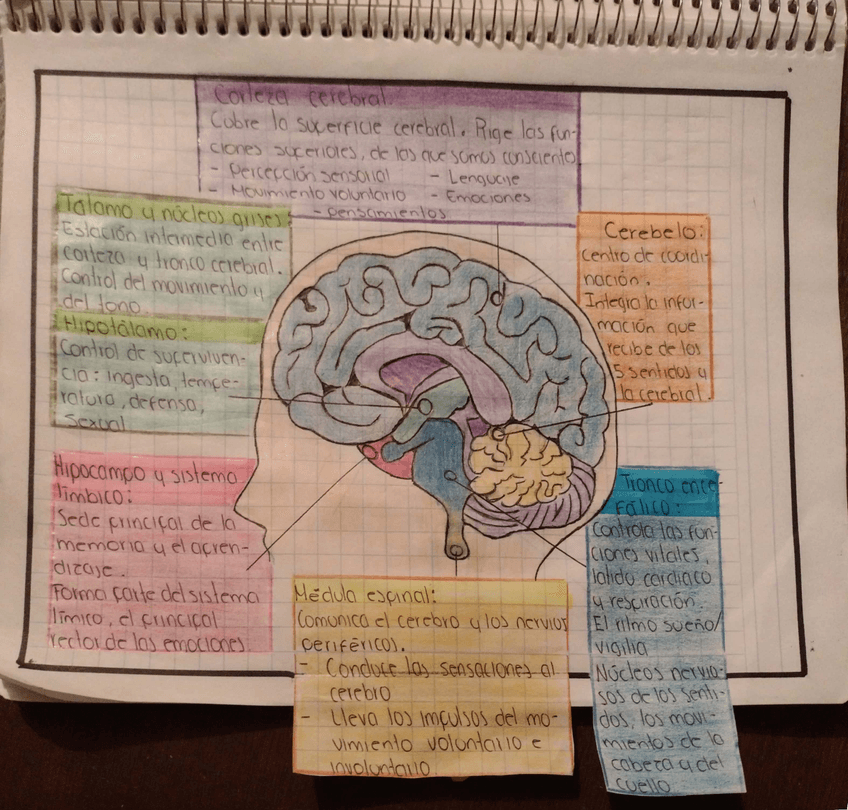 Corteza cerebral
Cubre la superficie cerebral. Rige las fun-
ciones superiores, de las que somos consciente
- Percepción sensorial - Lenguaje
- Movimiento voluntario - Emociones
- pensamientos
Tálamo y núcleos grises:
Estación intermedia entre
corteza y tronco cerebral.
Control del movimiento y
del tono.
Hipotálamo:
Control de superviven-
cia: ingesta, tempe-
ratura, defensa,
sexual
Hipocampo y sistema
límbico:
Sede principal de la
memoria y el apren-
dizaje.
Forma parte del sistema
límico, el principal
rector de las emociones
Cerebelo:
centro de coordi-
nación.
Integra la infor-
mación que
recibe de los
5 sentidos y
la cerebral
Tronco ence-
fálico:
Controla las fun-
ciones vitales,
latido cardiaco
y respiración.
El ritmo sueño/
vigilia
Núcleos nervio-
sos de los senti-
dos, los movi-
mientos de la
cabeza y del
cuello
Médula espinal:
Comunica el cerebro y los nervios
periféricos.
- Conduce las sensaciones al
cerebro
- Lleva los impulsos del mo-
vimiento voluntario e
involuntario